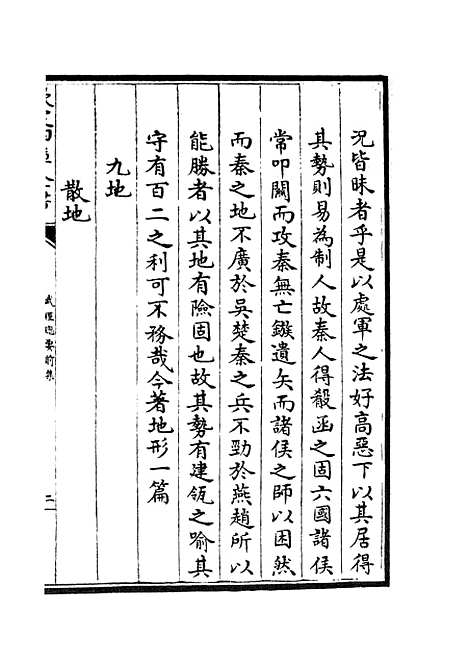 況皆昧者乎是以處軍之法好高惡下以其居得
其勢則易為制人故秦人得殽函之固六國諸侯
常叩關而攻秦無亡鏃遺矢而諸侯之師以困然
而秦之地不廣於吳楚秦之兵不勁於燕趙所以
能勝者以其地有險固也故其勢有建瓴之喻其
守有百二之利可不務哉今著地形一篇
九地
散地
武經總要前集